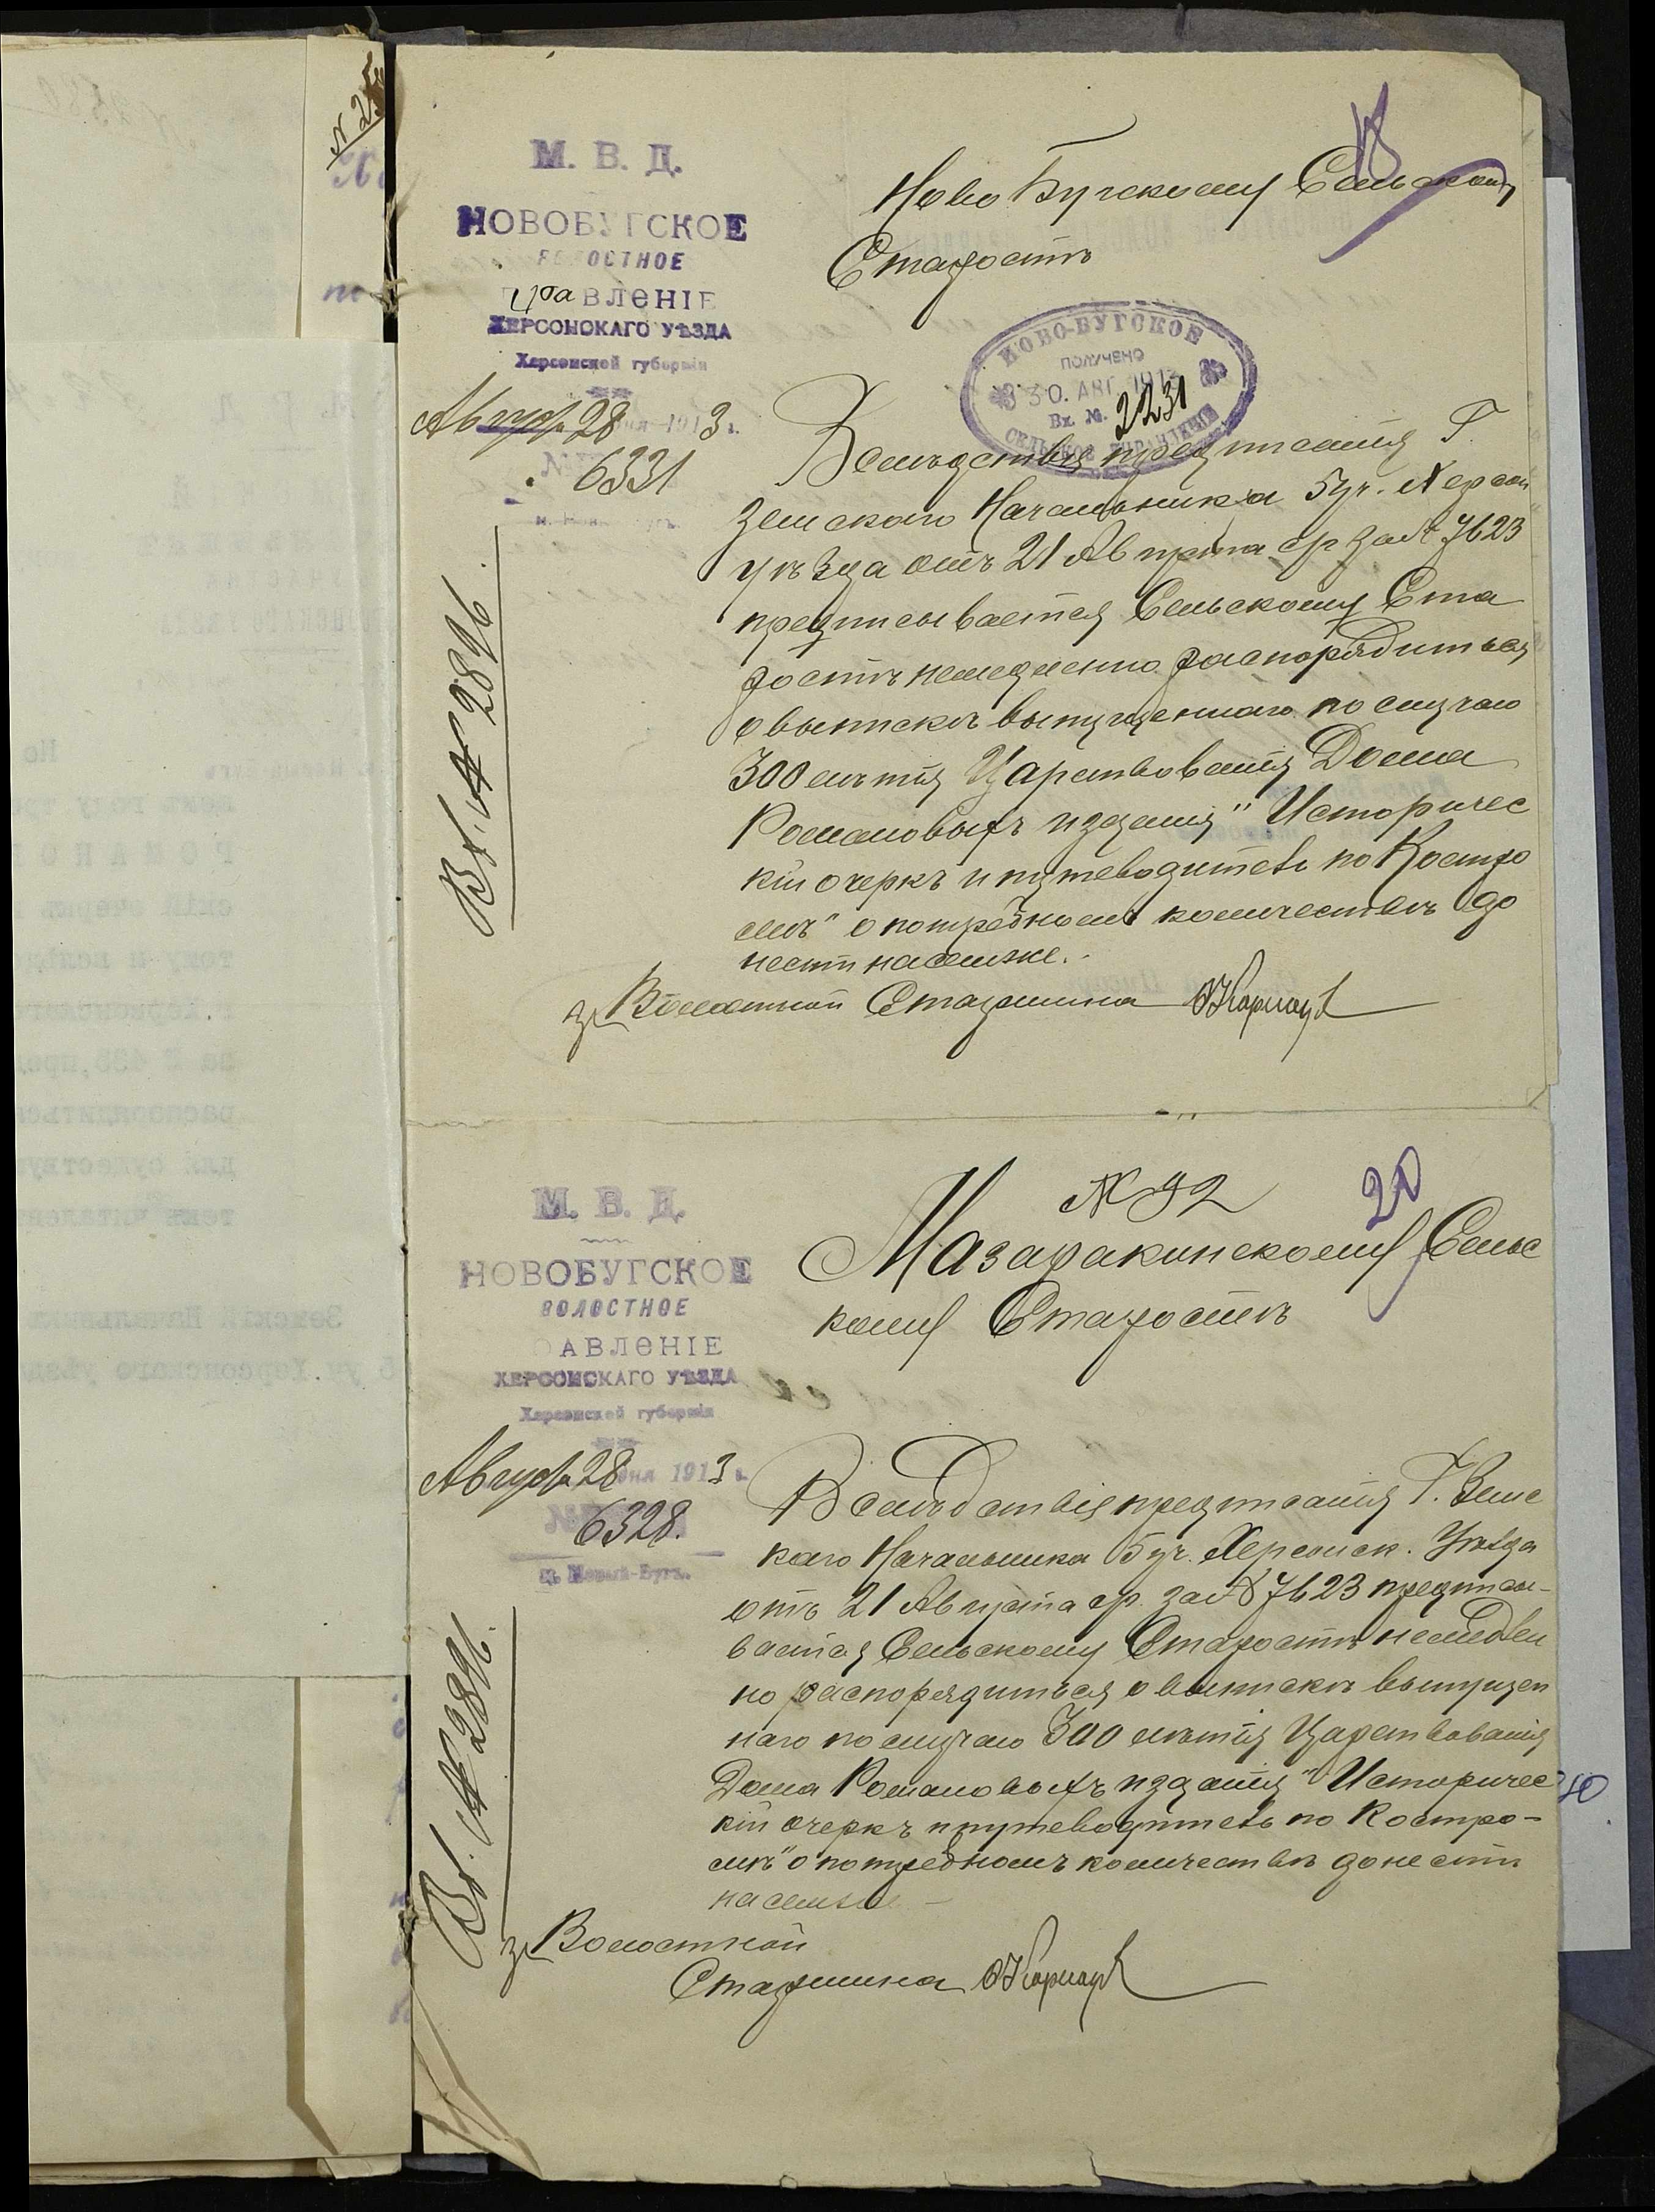 М. В. Д.
НОВОБУГСКОЕ
ВОЛОСТНОЕ
ПравЛЕНІЕ
ХЕРСОНСКАГО УѢЗДА
Херсонской губерніи
Август 28 1913 г.
№ 6331
Вх. № 2896.
18
Ново Бугскому Сельскому
Старостѣ
НОВО-БУГСКОЕ
ПОЛУЧЕНО
30. АВГ. 1913
Вх. №. 2231
СЕЛЬСКОЕ УПРАВЛЕНІЕ
Вслѣдствія предписанія Г.
Земскаго Начальника 5 уч. Херсон
уѣзда отъ 21 Августа с/г за № 7623
предписывается Сельскому Ста
ростѣ немедленно распорядиться
о выпискѣ выпущеннаго по случаю
300 лѣтія Царствованія Дома
Романовыхъ изданія "Историчес
кій очеркъ и путеводитель по Костро
мѣ" о потребномъ количествѣ до
нести насемже.
за Волостной Старшина
№ 92
20
М. В. Д.
НОВОБУГСКОЕ
ВОЛОСТНОЕ
АВЛЕНІЕ
ХЕРСОНСКАГО УѢЗДА
Херсонской губерніи
Август 28 1913 г.
№ 6328.
м. Новый-Бугъ.
Вх. № 2896.
Мазаракинскому Сельс
кому Старостѣ
Вслѣдствія предписанія Г. Земс
каго Начальника 5 уч. Херсонск. Уѣзда
отъ 21 Августа с/г. за № 7623 предписы-
вается Сельскому Старостѣ немедлен
но распорядиться о выпискѣ выпущен
наго по случаю 300 лѣтія Царствованія
Дома Романовыхъ изданія "Историчес
кій очеркъ и путеводитель по Костро-
мѣ" о потребномъ количествѣ донести
насемже
за Волостной
Старшина